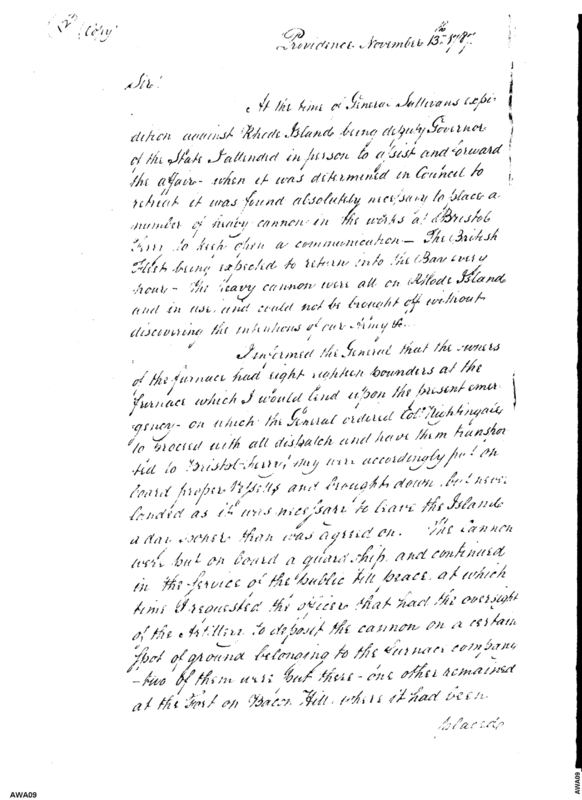 (Copy)
Providence November 13th 1787
Sir!
At the time of General Sullivans expe
dition against Rhode Island being deputy Governor
of the State I attended in person to assist and forward
the affair - when it was determined in Council to
retreat it was found absolutely necessary to place a
number of heavy cannon in the works at Bristol
Ferry to keep open a communication - The British
Fleet being expected to return into the Bay every
hour - The heavy cannon were all on Rhode Island
and in use and could not be brought off without
discovering the intentions of our Army &c.
I informed the General that the owners
of the furnace had eight eighteen pounders at the
furnace which I would lend upon the present emer
gency - on which the General ordered Colo. Nightingale
to proceed with all dispatch and have them transpor
ted to Bristol-Ferry, they were accordingly put on
board proper Vessells and brought down but never
landed as it was necessary to leave the Island
a day sooner than was agreed on. The Cannon
were put on board a guard ship and continued
in the service of the public till peace at which
time I requested the officer that had the oversight
of the Artillery to deposit the cannon on a certain
spot of ground belonging to the furnace company
- two of them were put there - one other remained
at the Fort on Bacon Hill where it had been
placed
AWA09
AWA09